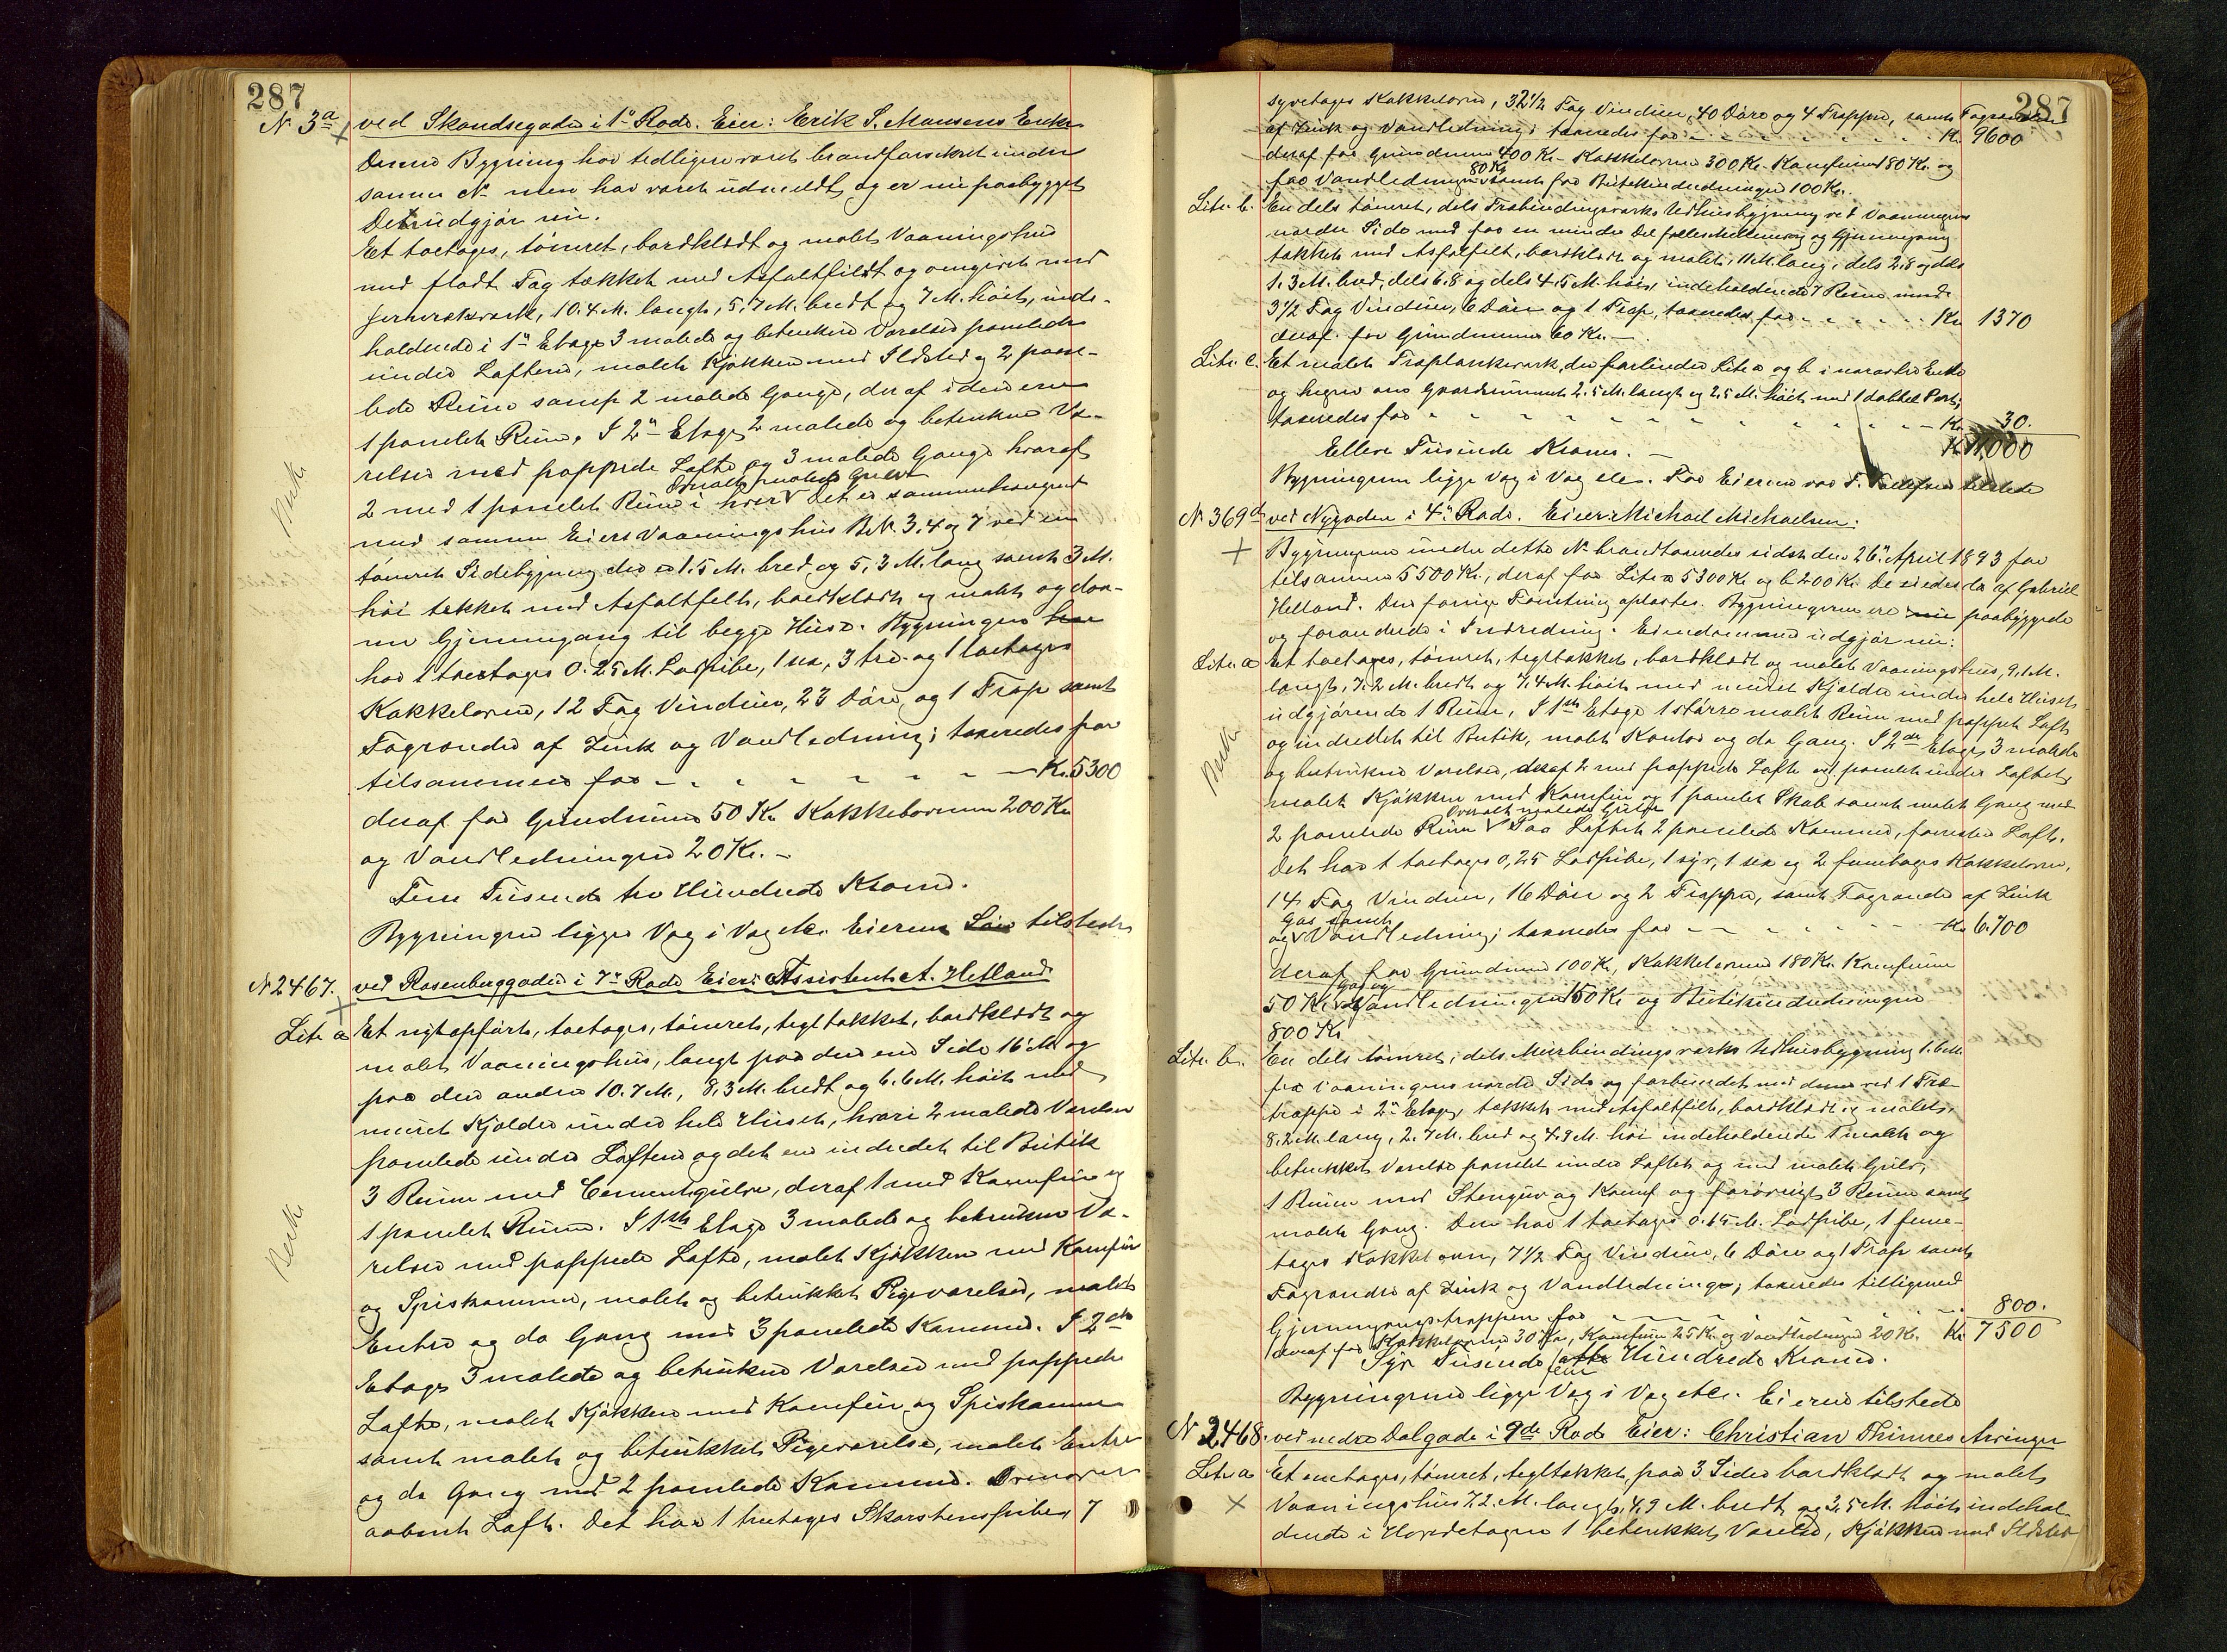 287
N. 3a ved Skandsegaden i 1ste Rode. Eier: Erik S. Monsens Enke
Denne Bygning har tidligere været brandforsikret under
samme No men har været udmeldt og er nu paabygget
Det udgjør nu.
Et toetages, tømret, bordklædt og malet Vaaningshus
med fladt Tag tækket med Asfaltfildt og omgivet med
Jernrækværk, 10.4 M. langt, 5,7 M. bredt og 7 M. høit, inde-
holdende i 1ste Etage 3 malede og betrukne Værelser panelede
under Lofterne, malet Kjøkken med Ildsted og 2 pane-
lede Rum samt 2 malede Gange, deraf i den ene
1 panelet Rum. I 2n Etage 2 malede og betrukne Væ-
relser med pappede Lofte og 3 malede Gange hvoraf
2 med 1 panelet Rum i hver Overalt malede Gulve Det er sammenhængende
med samme Eiers Vaaningshus B.N. 3, 4 og 7 ved en
tømret Sidebygning der er 1.5 M. bred og 5,3 M. lang samt 3 M.
høi tækket med Asfaltfelt, bordklædt og malet og dan-
ner Gjennemgang til begge Huse. Bygningen har
har 1 toetages 0.25 M. Ladpibe, 1 sex, 3 tre- og 1 toetages
Kakkelovne, 12 Fag Vinduer, 23 Døre og 1 Trap samt
Tagrender af Zink og Vandledning; taxeredes for
tilsammen for - - - Kr. 5300
deraf for Grundmuren 50 Kr. Kakkelovnene 200 Kr
og Vandledningen 20 Kr. -
Fem Tusinde tre Hundrede Kroner.
Bygningen ligger Væg i Væg etc. Eieren tilstede
Besk
N 2467. ved Rosenberggaden i 7de Rode Eier: Assistent A. Hetland.
Litr a Et nyopført, toetages, tømret, tegltækket, bordklædt og
malet Vaaningshus, langt paa den ene Side 16 M. og
paa den anden 10.7 M., 8,3 M. bredt og 6.6 M. høit med
muret Kjelder under hele Huset, hvori 2 malede Værelser
panelede under Lofterne og det ene indredet til Butik
3 Rum med Cementgulve, deraf 1 med Komfur og
1 panelet Rum. I 1ste Etage 3 malede og betrukne Væ-
relser med pappede Lofte, malet Kjøkken med Komfur
og Spiskammer, malet og betrukket Pigeværelse, malet
Entre og do Gang med 3 panelede Kammer. I 2den
Etage 3 malede og betrukne Værelser med pappede
Lofte, malet Kjøkken med Komfur og Spiskammer
samt malet og betrukket Pigeværelse, malet Entre
og do Gang med 2 panelede Kammer. Ovenover
aabent Loft. Det har 1 tretages Skorstenspibe, 7
Besk
287
syvetages Kakkelovne, 32 1/2 Fag Vinduer, 40 Døre og 4 Trapper, samt Tagrender
af Zink og Vandledning; taxeredes for - - - Kr. 9600
deraf for Grundmuren 400 Kr. Kakkelovnene 300 Kr. Komfurene 180 Kr. og
for Vandledningen 80 Kr samt for Butikindredningen 100 Kr.
Litr. b. En dels tømret, dels Træbindingsværks Udhusbygning ved Vaaningens
nordre Side med for en mindre Del fælles Mellemvæg og Gjennemgang
tækket med Asfaltfilt, bordklædt og malet, 11 M. lang, dels 2,8 og dels
1.3 M. bred, dels 6.8 og dels 4.5 M. høi, indeholdende 7 Rum med
3 1/2 Fag Vinduer, 6 Døre og 1 Trap, taxeredes for - - - Kr 1370
deraf for Grundmuren 60 Kr. -
Litr. c. Et malet Træplankeværk, der forbinder Litr a og b i nordre Ende
og hegner om Gaardsrummet 2.5 M. langt og 2,5 M. høit med 1 dobbelt Port;
taxeredes for - - - Kr. 30.
Elleve Tusinde Kroner. - Kr 11,000
Bygningerne ligge Væg i Væg etc. For Eieren var T. Tollefsen tilstede
N. 369d ved Nygaden i 4de Rode. Eier: Michael Michaelsen.
Bygningerne under dette No brandtaxeredes sidst den 26de April 1893 for
tilsammen 5500 Kr., deraf for Litr a 5300 Kr. og b 200 Kr. De eiedes da af Gabriel
Helland. Den forrige Forretning oplæstes. Bygningerne ere nu paabyggede
og forandrede i Indredning. Eiendommen udgjør nu:
Litr. a Et toetages, tømret, tegltækket, bordklædt og malet Vaaningshus, 9.1 M.
langt, 7.2 M. bredt og 7.4 M. høit med muret Kjælder under hele Huset
udgjørende 1 Rum, I 1ste Etage 1 større malet Rum med pappet Loft
og indredet til Butik, malet Kontor og do Gang. I 2den Etage 3 malede
og betrukne Værelser, deraf 2 med pappede Lofte og 1 panelet under Loftet,
malet Kjøkken med Komfur og 1 panelet Skab samt malet Gang med
2 panelede Rum Overalt malede Gulve Paa Loftet 2 panelede Kammer, forresten Loft.
Det har 1 toetages 0,25 Ladpibe, 1 syv, 1 sex og 2 femetages Kakkelovne,
14 Fag Vinduer, 16 Døre og 2 Trapper, samt Tagrender af Zink
og Gas samt Vandledning; taxeredes for - - - Kr 6.700
deraf for Grundmuren 100 Kr, Kakkelovnene 180 Kr. Komfuren
50 Kr. Gas og Vandledningen 150 Kr og Butikindredningen
800 Kr
Besk
Litr. b. En dels tømret, dels Murbindingsværks Udhusbygning 1.6 M.
fra Vaaningens nordre Side og forbundet med denne ved 1 Træ-
trappe i 2n Etage, tækket med Asfaltfilt, bordklædt og malet,
8.2 M. lang, 2.7 M. bred og 4.9 M. høi indeholdende 1 malet og
betrukket Værelse panelet under Loftet og med malet Gulv,
1 Rum med Stengulv og Komf. og forøvrigt 3 Rum samt
malet Gang. Den har 1 toetages 0.15 M. Ladpibe, 1 feme-
tages Kakkelovn, 7 1/2 Fag Vinduer, 6 Døre og 1 Trap samt
Tagrender af Zink og Vandledning; taxeredes tilligemed
Gjennemgangstrappen for - - - 800.
deraf for Kakkelovnen 30 Kr, Komfuren 25 Kr. og Vandledningen 20 Kr. Kr 7500
Syv Tusinde fem Hundrede Kroner.
Bygningerne ligge Væg i Væg etc. Eieren tilstede
N 2468. ved nedre Dalgade i 9de Rode Eier: Christian Thimes Arvinger
Litr a Et enetages, tømret, tegltækket, paa 3 Sider bordklædt og malet
Vaaningshus 7.2. M. langt, 4,9 M. bredt og 3,5 M. høit indehol-
dende i Hovedetagen 1 betrukket Værelse, Kjøkken med Ildsted